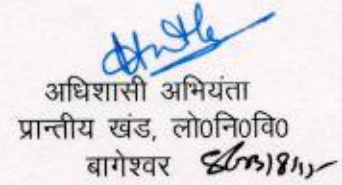 अधिशासी अभियंता
प्रान्तीय खंड, लो0नि0वि0
बागेश्वर